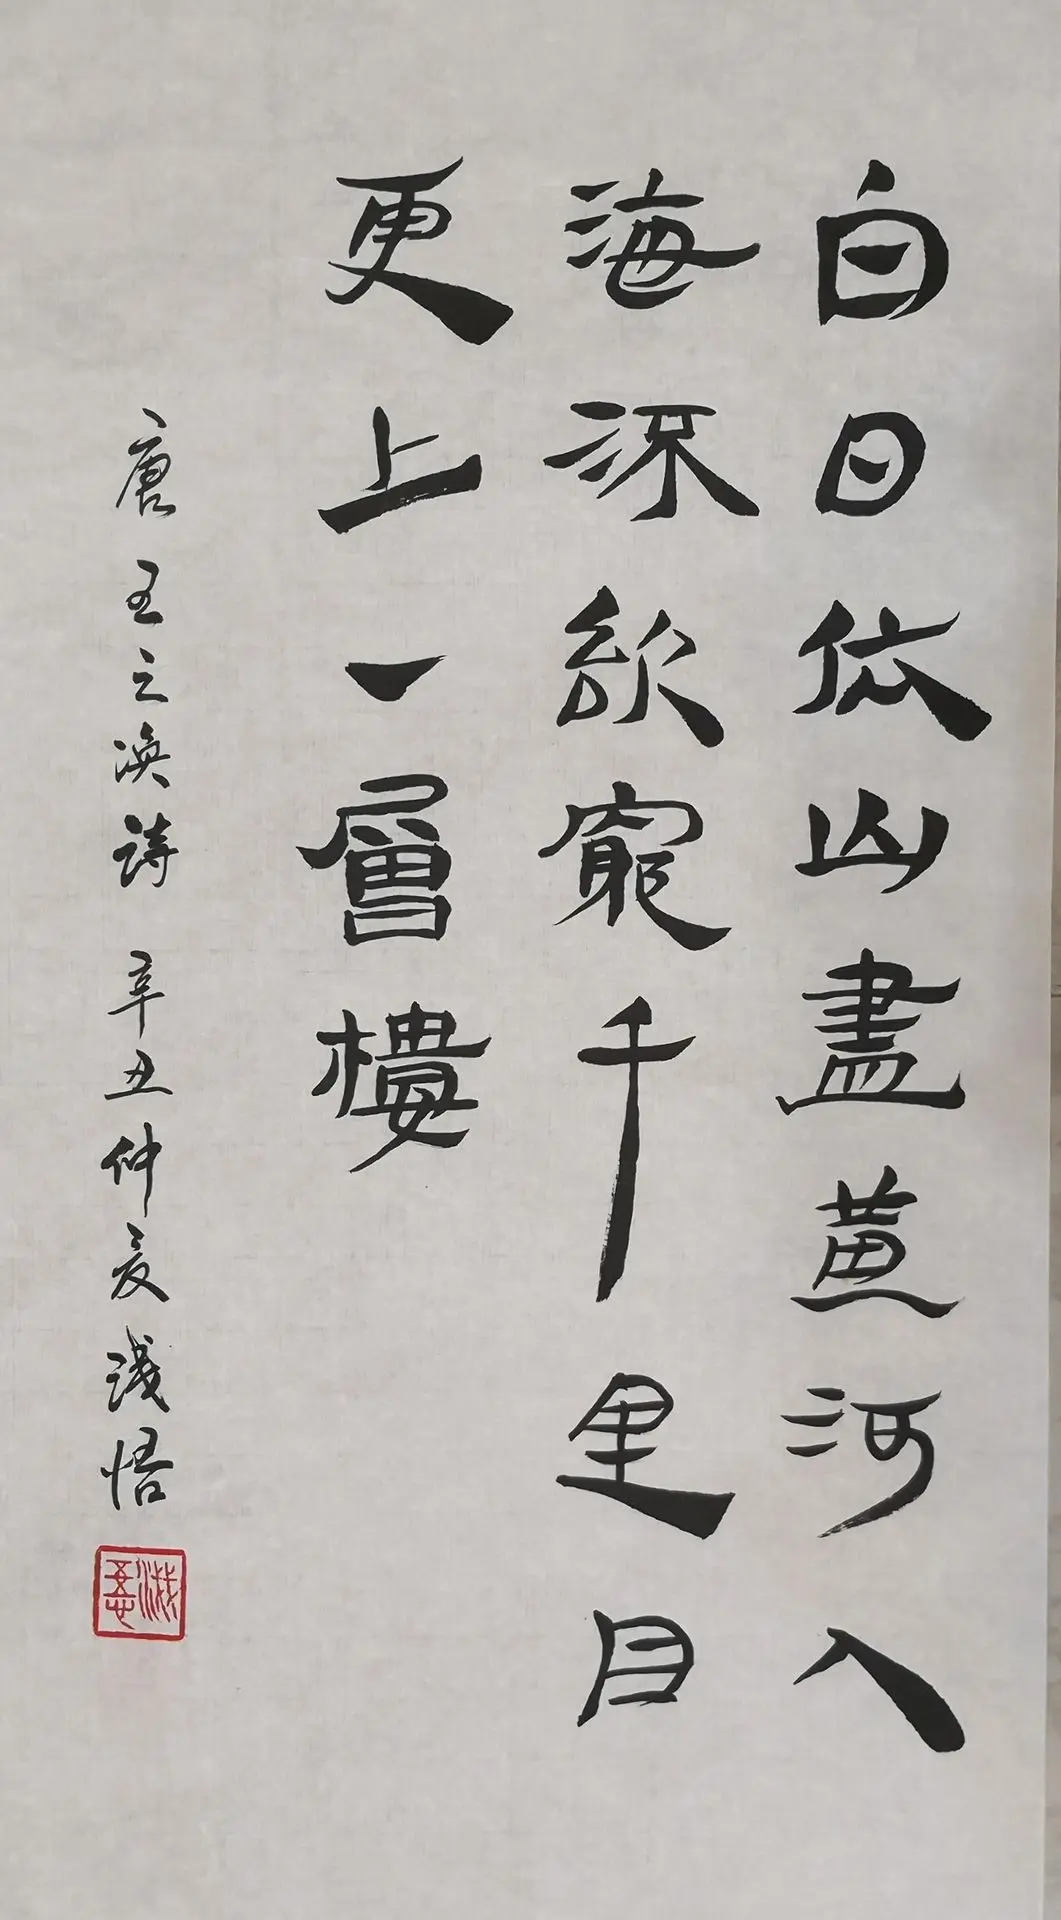 白日依山盡黄河入
海流欲窮千里目
更上一層樓
唐王之涣詩 辛丑仲夏浅悟
浅悟